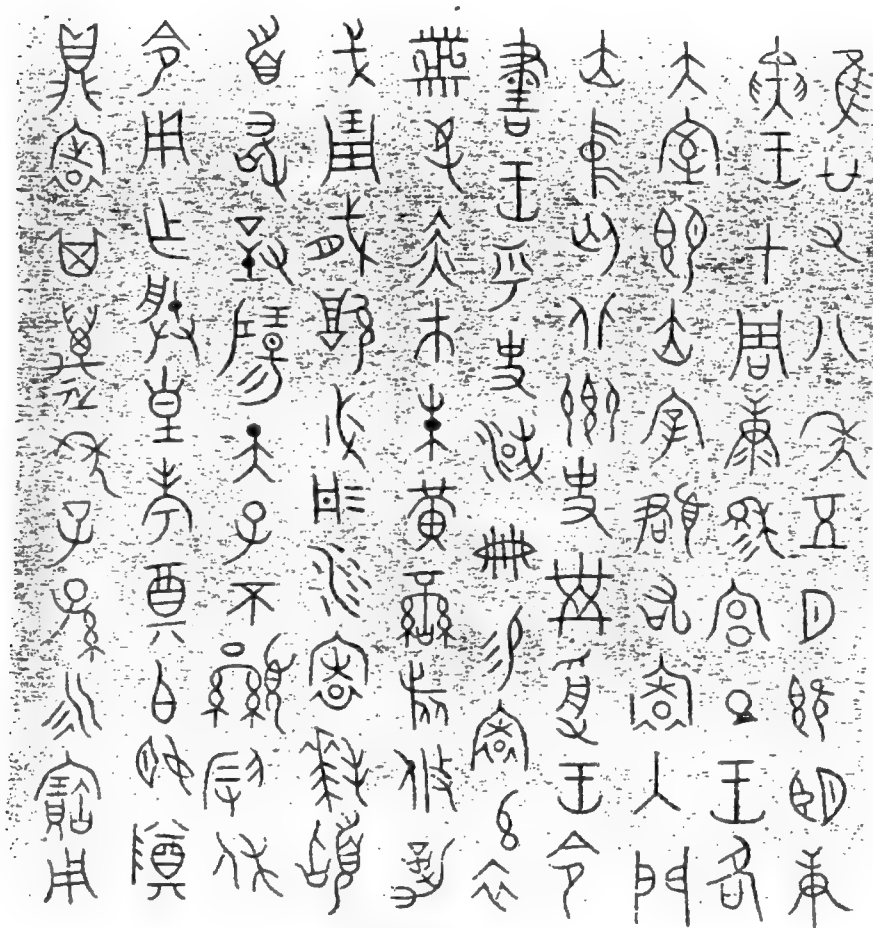 隹廿又八年五月既望庚
寅王才周康穆宮旦王各
大室即立宰頵右寰入門
立中廷北鄉史黹受王令
書王乎史淢冊易寰玄衣
黹屯赤巿朱黃鑾旂攸勒
戈琱㦰厚必彤沙寰拜𩒨
首敢對揚天子不顯叚休
令用乍朕皇考奠白姬尊
鼎寰其萬年子孫永寶用